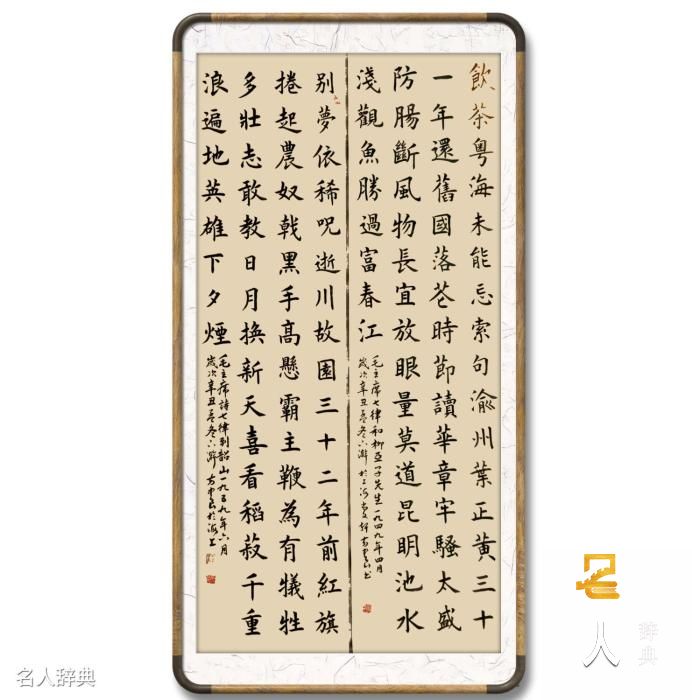 飲茶粵海未能忘索句渝州葉正黃三十
一年還舊國落花時節讀華章牢騷太盛
防腸斷風物長宜放眼量莫道昆明池水
淺觀魚勝過富春江
毛主席七律和柳亞子先生一九四九年四月
歲次辛丑孟冬六澣於上海
別夢依稀呪逝川故園三十二年前紅旗
捲起農奴戟黑手高懸霸主鞭為有犧牲
多壯志敢教日月換新天喜看稻菽千重
浪遍地英雄下夕煙
毛主席詩七律到韶山一九五九年六月
歲次辛丑孟冬六澣於海上
名人辞典
名人辞典